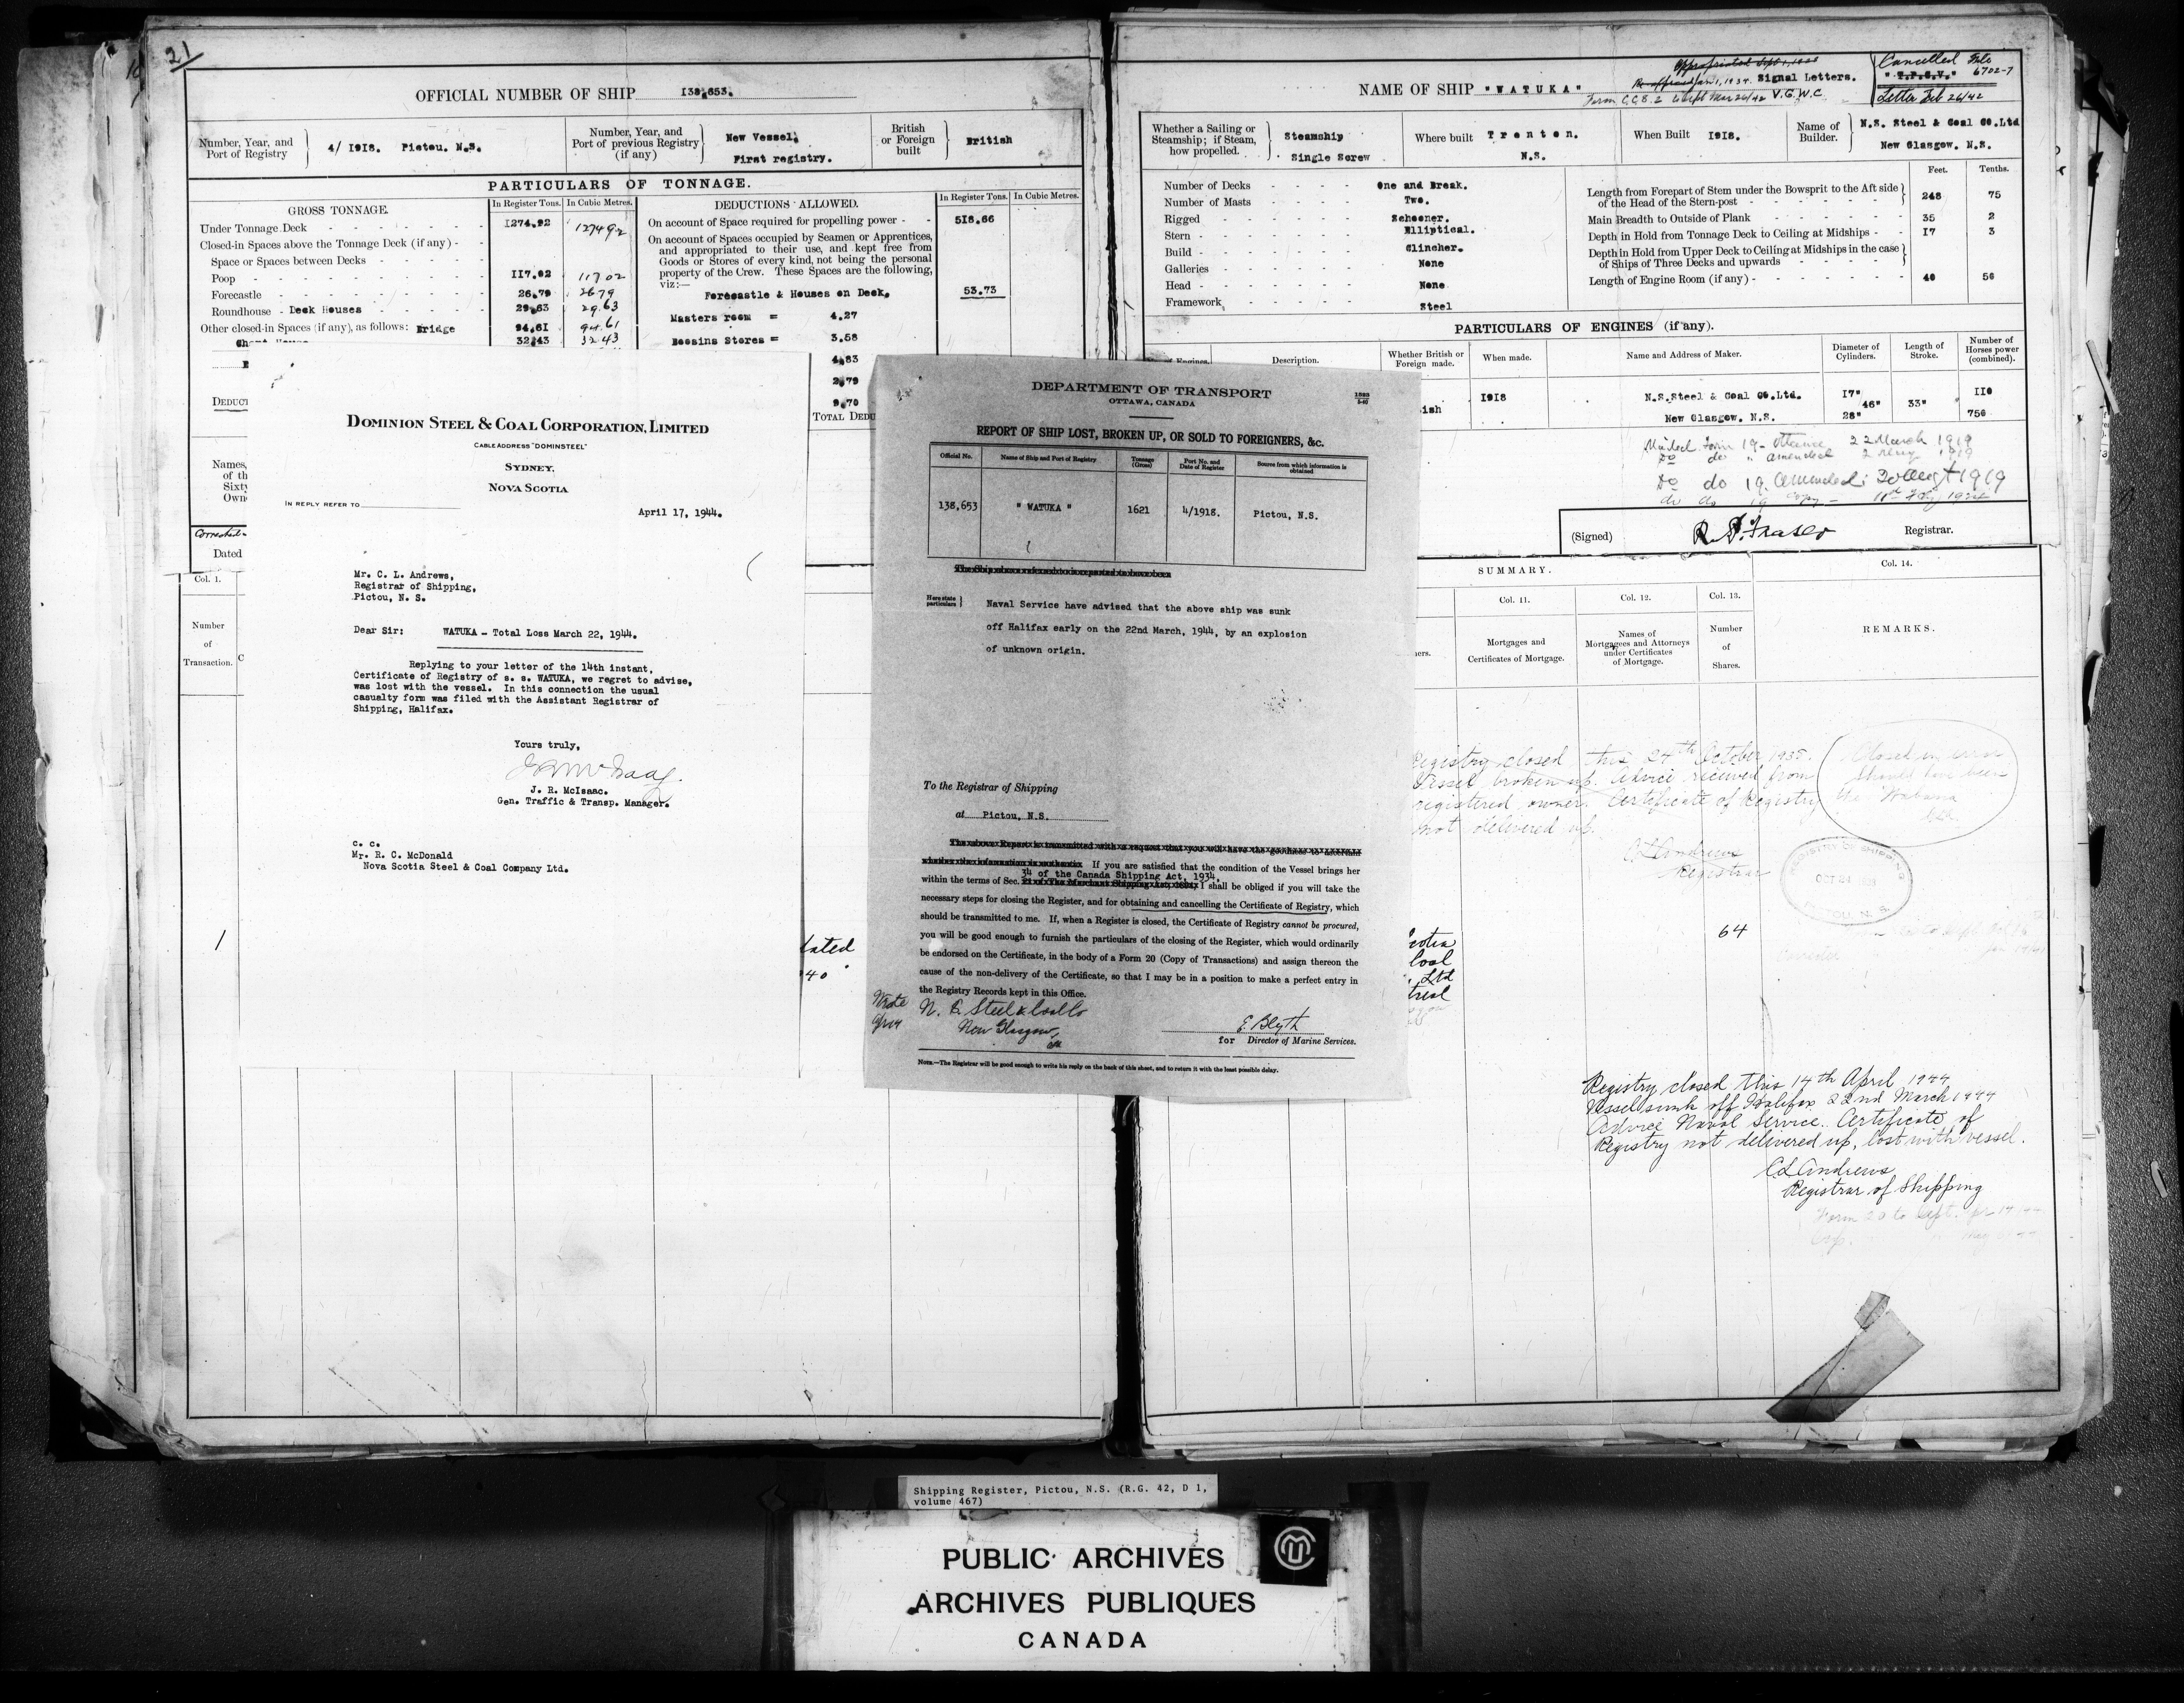 21
OFFICIAL NUMBER OF SHIP 138,653.
Number, Year, and
Port of Registry
4/ 1918. Pictou. N.S.
Number, Year, and
Port of previous Registry
(if any)
New Vessel,
First registry.
British
or Foreign
built
British
PARTICULARS OF TONNAGE.
GROSS TONNAGE.
In Register Tons. In Cubic Metres.
Under Tonnage Deck 1274.92 127492
Closed-in Spaces above the Tonnage Deck (if any)
Space or Spaces between Decks
Poop 117.02 11702
Forecastle 26.79 2679
Roundhouse - Deck Houses 29.63 29.63
Other closed-in Spaces (if any), as follows: Bridge 94.61 94.61
32.43 3243
DEDUCTIONS ALLOWED.
In Register Tons. In Cubic Metres.
On account of Space required for propelling power 518.66
On account of Spaces occupied by Seamen or Apprentices,
and appropriated to their use, and kept free from
Goods or Stores of every kind, not being the personal
property of the Crew. These Spaces are the following,
viz:—
Forecastle & Houses on Deck. 53.73
Masters room = 4.27
Bossins Stores = 3.58
4.83
2.79
9.70
TOTAL DEDU
DEDUCT
Names,
of th
Sixty
Own
Dated
Col. 1.
Number
of
Transaction.
1
DOMINION STEEL & COAL CORPORATION, LIMITED
CABLE ADDRESS "DOMINSTEEL"
SYDNEY,
NOVA SCOTIA
IN REPLY REFER TO
April 17, 1944.
Mr. C. L. Andrews,
Registrar of Shipping,
Pictou, N. S.
Dear Sir: WATUKA - Total Loss March 22, 1944.
Replying to your letter of the 14th instant,
Certificate of Registry of s. s. WATUKA, we regret to advise,
was lost with the vessel. In this connection the usual
casualty form was filed with the Assistant Registrar of
Shipping, Halifax.
Yours truly,
J R McIsaac.
J. R. McIsaac.
Gen. Traffic & Transp. Manager.
c. c.
Mr. R. C. McDonald
Nova Scotia Steel & Coal Company Ltd.
DEPARTMENT OF TRANSPORT
OTTAWA, CANADA
REPORT OF SHIP LOST, BROKEN UP, OR SOLD TO FOREIGNERS, &c.
Official No. Name of Ship and Port of Registry Tonnage (Gross) Port No. and Date of Register Source from which information is obtained
138,653 " WATUKA " 1621 4/1918. Pictou, N.S.
The Ship above referred to is reported to have been
Here state
particulars
Naval Service have advised that the above ship was sunk
off Halifax early on the 22nd March, 1944, by an explosion
of unknown origin.
To the Registrar of Shipping
at Pictou, N.S.
The above Report is transmitted with a request that you will have the goodness to ascertain
whether the information is authentic If you are satisfied that the condition of the Vessel brings her
34 of the Canada Shipping Act, 1934,
within the terms of Sec. 21 of The Merchant Shipping Act, 1894, I shall be obliged if you will take the
necessary steps for closing the Register, and for obtaining and cancelling the Certificate of Registry, which
should be transmitted to me. If, when a Register is closed, the Certificate of Registry cannot be procured,
you will be good enough to furnish the particulars of the closing of the Register, which would ordinarily
be endorsed on the Certificate, in the body of a Form 20 (Copy of Transactions) and assign thereon the
cause of the non-delivery of the Certificate, so that I may be in a position to make a perfect entry in
the Registry Records kept in this Office.
Wrote N. S. Steel & Coal Co
New Glasgow,
E Blyth
for Director of Marine Services.
NOTE.—The Registrar will be good enough to write his reply on the back of this sheet, and to return it with the least possible delay.
NAME OF SHIP "WATUKA"
Signal Letters.
V.G.W.C
Cancelled File
6702-7
Letter Feb 26/42
Whether a Sailing or
Steamship; if Steam,
how propelled.
Steamship
Single Screw
Where built Trenton.
N.S.
When Built 1918.
Name of
Builder.
N.S. Steel & Coal Co.Ltd
New Glasgow. N.S.
Number of Decks One and Break.
Number of Masts Two.
Rigged Schooner.
Stern Elliptical.
Build Clincher.
Galleries None
Head None
Framework Steel
Feet. Tenths.
Length from Forepart of Stem under the Bowsprit to the Aft side
of the Head of the Stern-post 248 75
Main Breadth to Outside of Plank 35 2
Depth in Hold from Tonnage Deck to Ceiling at Midships 17 3
Depth in Hold from Upper Deck to Ceiling at Midships in the case
of Ships of Three Decks and upwards
Length of Engine Room (if any) 40 50
PARTICULARS OF ENGINES (if any).
Description.
Whether British or
Foreign made.
When made.
Name and Address of Maker.
Diameter of
Cylinders.
Length of
Stroke.
Number of
Horses power
(combined).
ish
1918
N.S.Steel & Coal Co.Ltd.
New Glasgow. N.S.
17"
46"
28"
33"
110
750
Form 19 Ottawa 22 March 1919
Do do 19 amended 20 Augt 1919
(Signed) Registrar.
SUMMARY.
Col. 11. Col. 12. Col. 13. Col. 14.
Mortgages and
Certificates of Mortgage.
Names of
Mortgagees and Attorneys
under Certificates
of Mortgage.
Number
of
Shares.
REMARKS.
Registry closed this 24th October 1935.
Vessel broken up. Advice received from
registered owner. Certificate of Registry
not delivered up.
C L Andrews
Registrar
Closed in error
Should have been
the Wabana
REGISTRY OF SHIPPING
OCT 24
PICTOU, N. S.
64
Registry closed this 14th April 1944
Vessel sunk off Halifax 22nd March 1944
Advice Naval Service. Certificate of
Registry not delivered up, lost with vessel.
C L Andrews
Registrar of Shipping
Shipping Register, Pictou, N.S. (R.G. 42, D 1,
volume 467)
PUBLIC ARCHIVES
ARCHIVES PUBLIQUES
CANADA